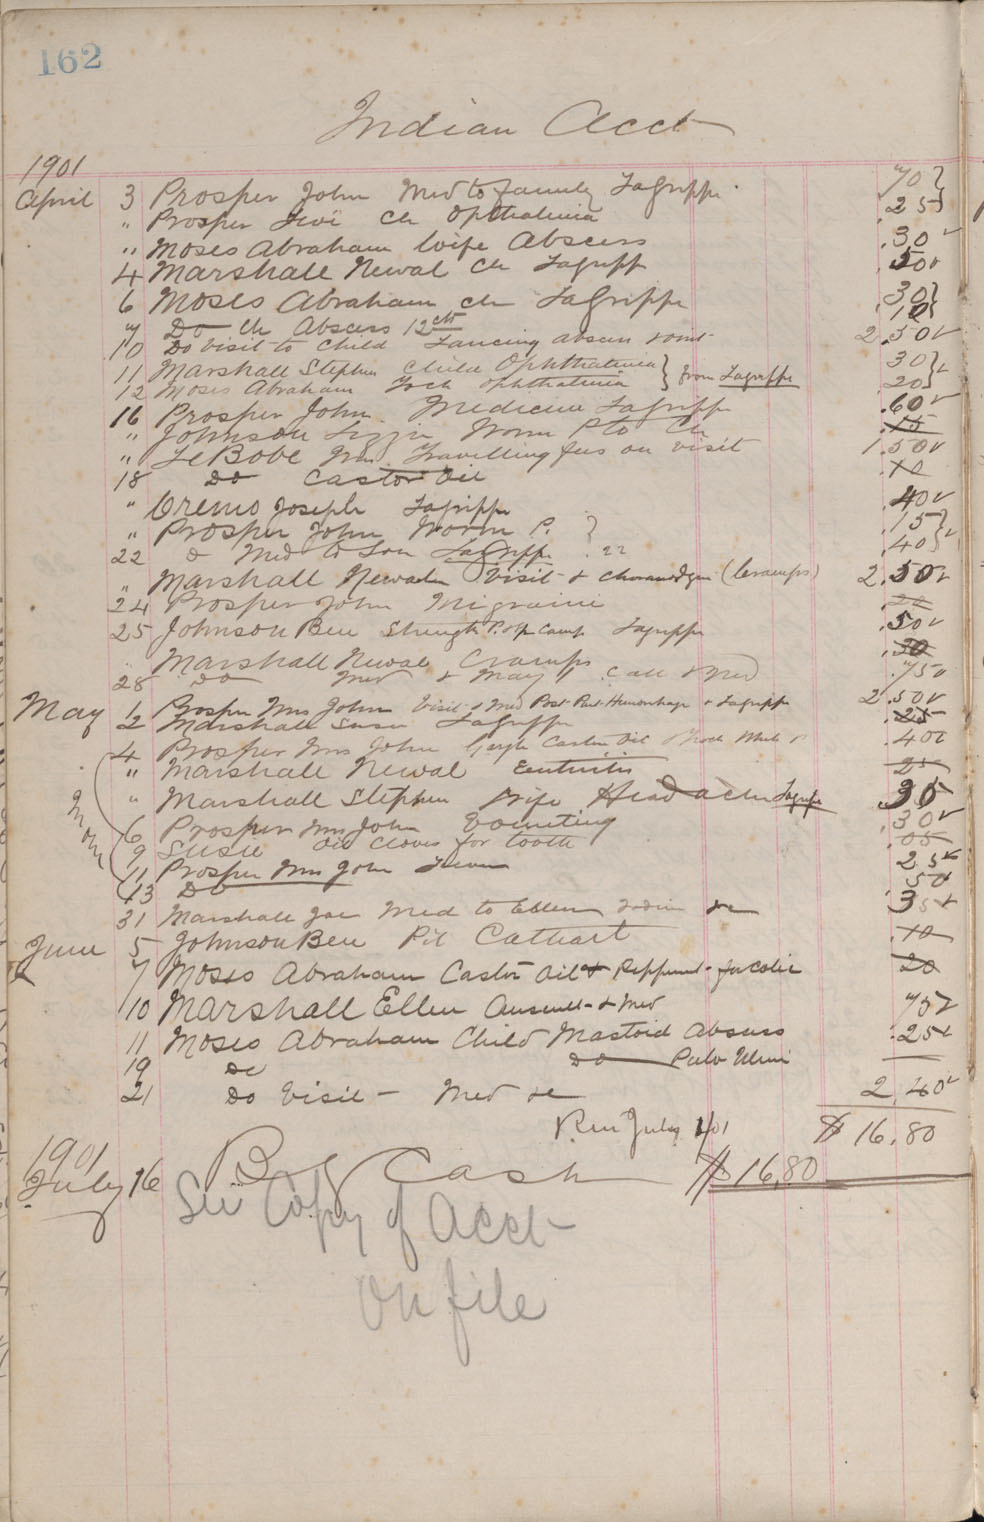 162
Indian Acct
1901
April 3 Prosper John Med to family LaGrippe .70
" Prosper Levi Ch Opthalmia .25
" Moses Abraham Wife Abscess .30
4 Marshall Newal Ch Lagripp .50
6 Moses Abraham Ch LaGrippe .30
7 Do Ch Abscess 12 .10
10 Do Visit to Child Lancing abscess 2.50
11 Marshall Stephen Child Ophthalmia .30
12 Moses Abraham ophthalmia from Lagrippe 20
16 Prosper John Medicine Lagripp .60
" Johnson Lizzie Worm Ch .15
" LeBobe Travelling on visit 1.50
18 Do Castor Oil .10
" Cremo Joseph Lagrippe .40
" Prosper John Worm P. .15
22 Med to Son LaGrippe .22 .40
" Marshall Newal Visit & (Cramps) 2.50
24 Prosper John Migraine
25 Johnson Ben Strength Camp Lagrippe .50
" Marshall Newal Cramps .30
28 Do Med & May 1 Call & Med .75
May 1 Prosper Mrs John Visit & Med Post Part Hemorrhage & Lagrippe 2.50
2 Marshall Susie LaGrippe .25
4 Prosper Mrs John Castor Oil .40
" Marshall Newal 25
" Marshall Stephen Wife Headache Lagrippe
6 Prosper Mrs John Vomiting .30
9 Susie Oil Cloves for tooth .05
11 Prosper Mrs John .25
13 Do 50
31 Marshall Joe Med to Ellen 35
June 5 Johnson Ben Pil Cathart .10
7 Moses Abraham Castor Oil & Peppermt for colic 20
10 Marshall Ellen & Med .75
11 Moses Abraham Child Mastoid Abscess .25
19 Do Do
21 Do Visit Med 2.40
July 1/01 $16.80
1901
July 16 By Cash $16.80
See Copy of Acct
On file